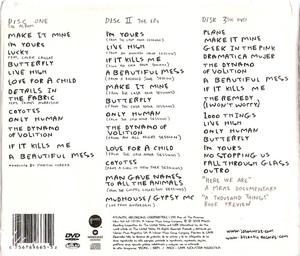 DISC ONE
THE ALBUM
MAKE IT MINE
I'M YOURS
LUCKY
FEAT. COLBIE CAILLAT
BUTTERFLY
LIVE HIGH
LOVE FOR A CHILD
DETAILS IN
THE FABRIC
FEAT. JAMES MORRISON
COYOTES
ONLY HUMAN
THE DYNAMO
OF VOLITION
IF IT KILLS ME
A BEAUTIFUL MESS
PRODUCED BY MARTIN TEREFE
DISC II THE EPs
I'M YOURS
LIVE HIGH
IF IT KILLS ME
(FROM THE CASA NOVA SESSIONS)
A BEAUTIFUL MESS
MAKE IT MINE
BUTTERFLY
ONLY HUMAN
THE DYNAMO OF
VOLITION
LOVE FOR A CHILD
COYOTES
MAN GAVE NAMES
TO ALL THE ANIMALS
MUDHOUSE / GYPSY MC
DISK 3 THE DVD
PLANE
MAKE IT MINE
GEEK IN THE PINK
DRAMATICA MUJER
THE DYNAMO
OF VOLITION
A BEAUTIFUL MESS
IF IT KILLS ME
THE REMEDY
(I WON'T WORRY)
1000 THINGS
LIVE HIGH
ONLY HUMAN
COYOTES
I'M YOURS
NO STOPPING US
FALL THROUGH GLASS
OUTRO
"HERE WE ARE"
A MRAZ DOCUMENTARY
"A THOUSAND THINGS"
BOOK PREVIEW
www.jasonmraz.com
www.atlanticrecords.com
DVD